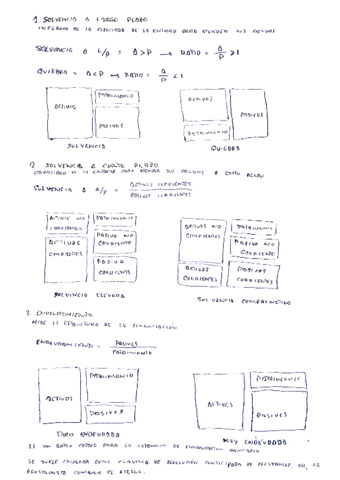 1. SOLVENCIA A LARGO PLAZO
INFORMA DE LA CAPACIDAD DE LA ENTIDAD PARA ATENDER SUS DEUDAS
SOLVENCIA A L/P = A > P → RATIO = A/P > 1
QUIEBRA = A < P → RATIO = A/P < 1
ACTIVOS PATRIMONIO PASIVOS
SOLVENCIA
ACTIVOS PATRIMONIO PASIVOS
QUIEBRA
2. SOLVENCIA A CORTO PLAZO
CAPACIDAD DE LA ENTIDAD PARA ATENDER SUS DEUDAS A CORTO PLAZO
SOLVENCIA A C/P = ACTIVOS CORRIENTES / PASIVOS CORRIENTES
ACTIVO NO CORRIENTE PATRIMONIO
ACTIVOS CORRIENTES PASIVO NO CORRIENTE
PASIVO CORRIENTE
SOLVENCIA ELEVADA
ACTIVOS NO CORRIENTES PATRIMONIO
PASIVO NO CORRIENTE
ACTIVOS CORRIENTES PASIVOS CORRIENTES
SOLVENCIA COMPROMETIDA
3. ENDEUDAMIENTO
MIDE LA ESTRUCTURA DE LA FINANCIACIÓN
ENDEUDAMIENTO = PASIVOS / PATRIMONIO
ACTIVOS PATRIMONIO PASIVOS
POCO ENDEUDADA
ACTIVOS PATRIMONIO PASIVOS
MUY ENDEUDADA
ES UN RATIO PARA LA OBTENCIÓN DE FINANCIACIÓN BANCARIA
SE SUELE COMO DE PRESTAMOS
PRESTAMISTA EL RIESGO.